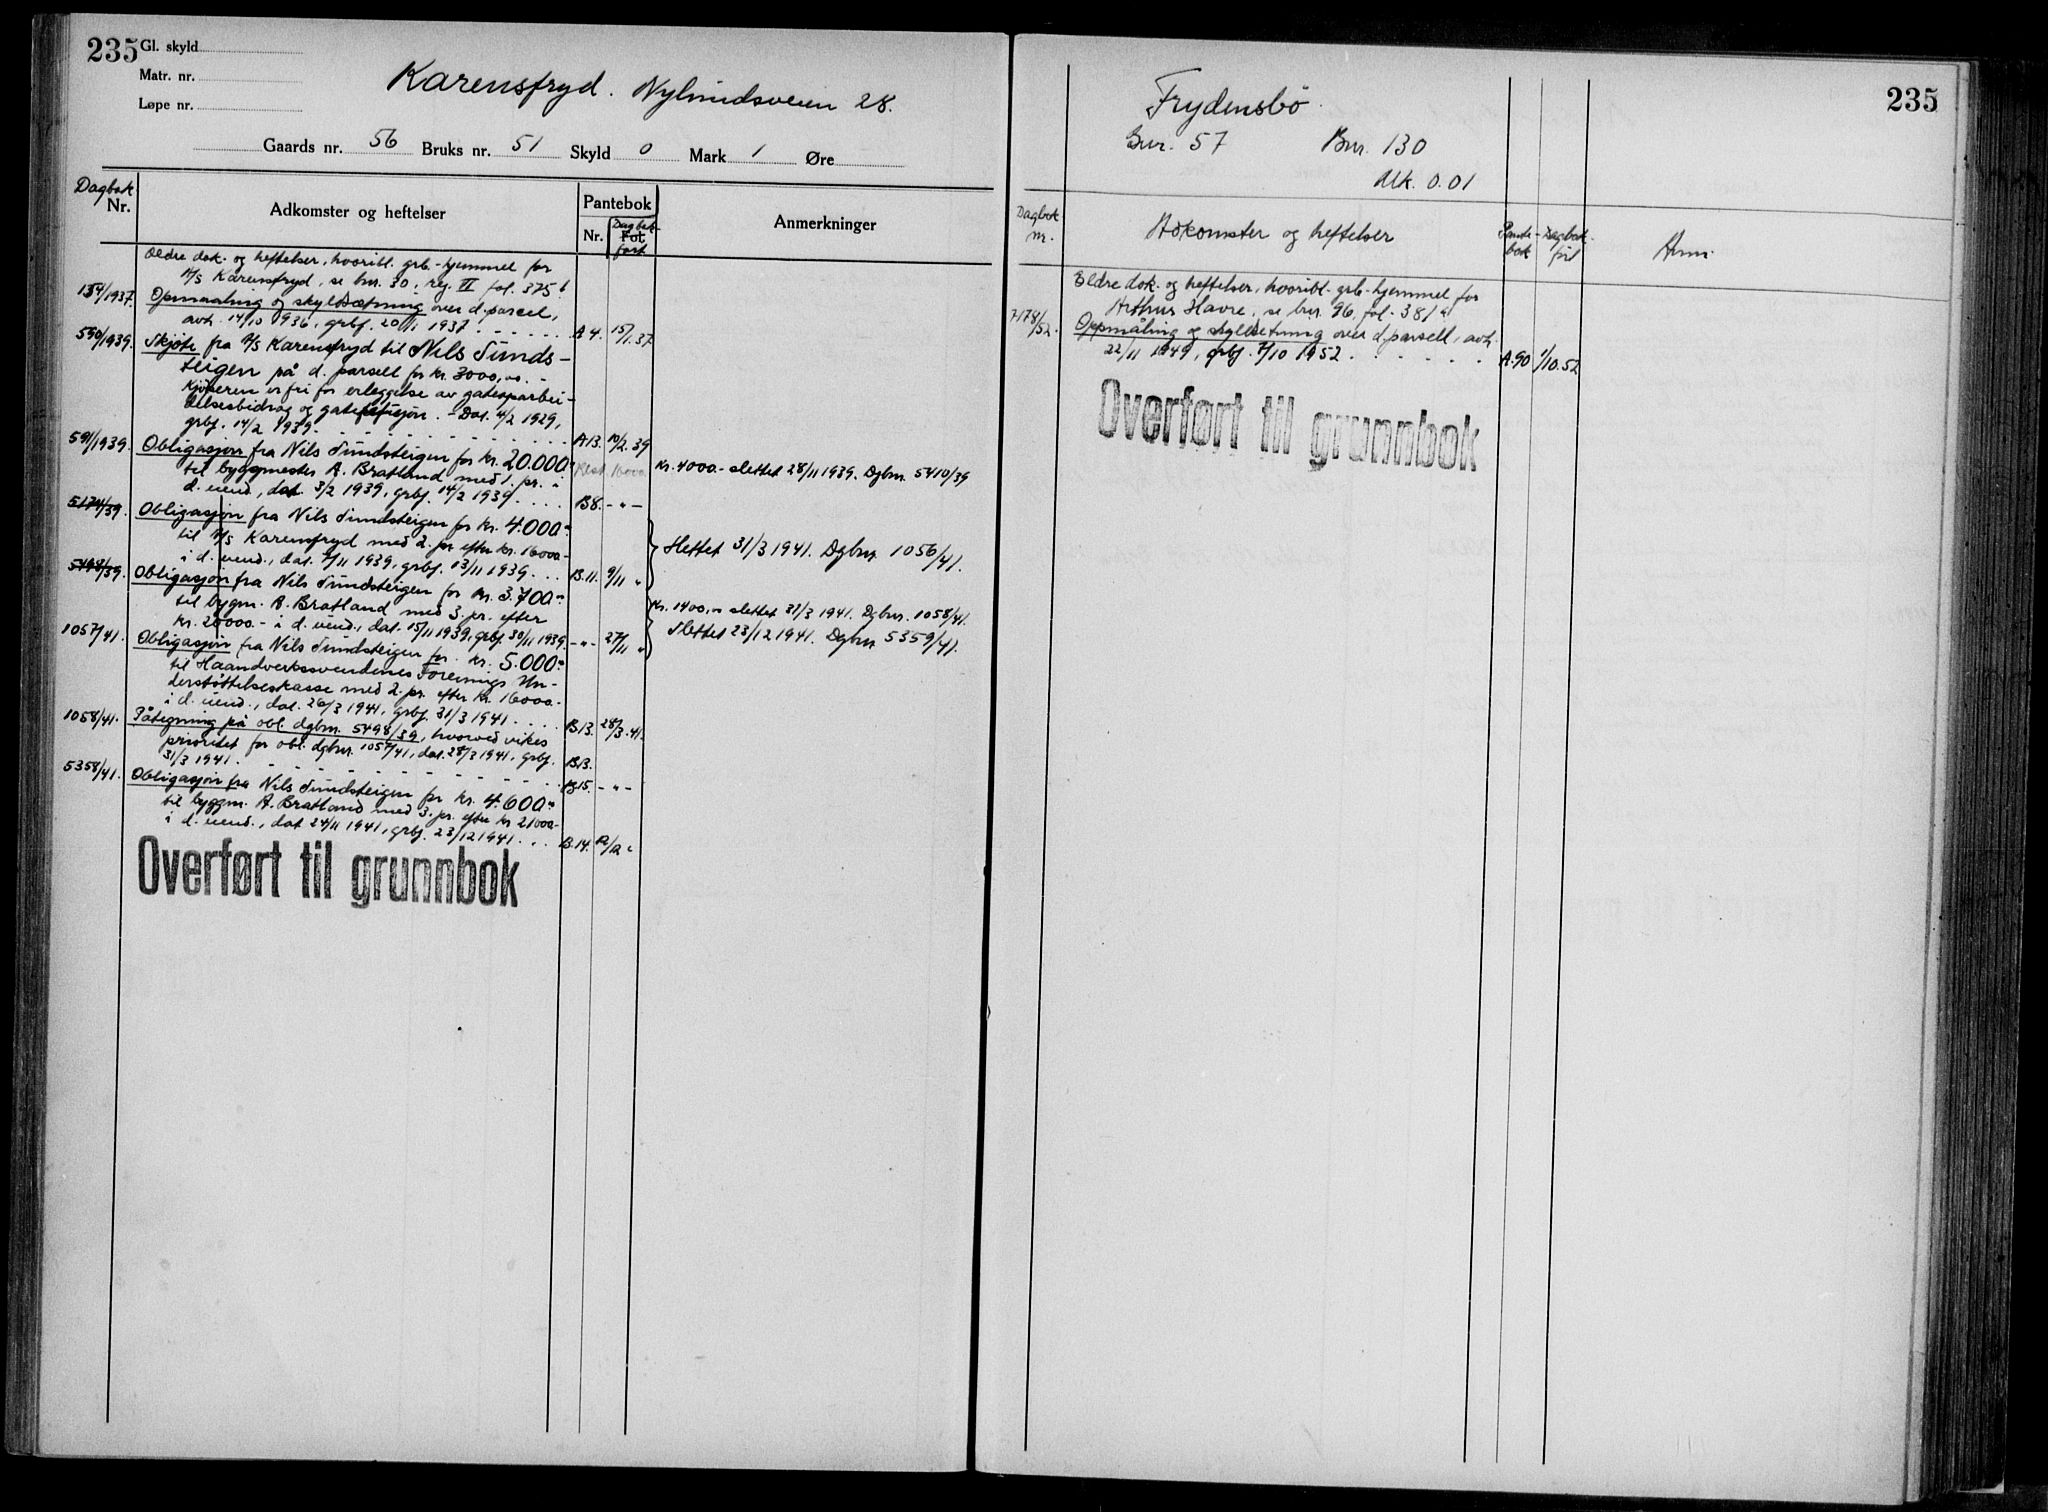 235 Gl. skyld
Matr. nr.
Løpe nr.
Karensfryd. Nylundsveien 28.
Gaards nr. 56 Bruks nr. 51 Skyld 0 Mark 1 Øre
Dagbok Nr. Adkomster og heftelser Pantebok Anmerkninger
Nr. Fol. Dagbok ført
Eldre dok. og heftelser, hvoribl. grb.-hjemmel for
A/S Karensfryd, se bnr. 30, reg. II fol. 375 b
154/1937. Opmaaling og skyldsætning over d. parcel,
avh. 14/10 1936, grbf. 20/1 1937. A 4. 15/1.37
590/1939. Skjøte fra A/S Karensfryd til Nils Sunds-
teigen på d. parsell for kr. 3000,00. -
Kjøperen er fri for erleggelse av gateoparbei-
delsesbidrag og gaterefusjon. - Dat. 4/2 1929,
grbf. 14/2 1939. A13. 10/2.39
591/1939. Obligasjon fra Nils Sundsteigen for kr. 20.000.-
til byggmester A. Bratland med 1. pr. i Rest 16000 Kr. 4000.- slettet 28/11 1939. Dgbnr. 5410/39
d. eiend., dat. 3/2 1939, grbf. 14/2 1939. B8. -"-
5174/39. Obligasjon fra Nils Sundsteigen for kr. 4.000.-
til A/S Karensfryd med 2. pr. efter kr. 16000.-
i d. eiend., dat. 7/11 1939, grbf. 13/11 1939. B.11. 9/11 " Slettet 31/3 1941. Dgbnr. 1056/41.
5498/39. Obligasjon fra Nils Sundsteigen for kr. 3.700.-
til bygm. A. Bratland med 3. pr. efter Kr. 1400,00 slettet 31/3 1941. Dgbnr. 1058/41.
kr. 20000.- i d. eiend., dat. 15/11 1939, grbf. 30/11 1939. -"- 27/11 " Slettet 23/12 1941. Dgbnr. 5359/41.
1057/41. Obligasjon fra Nils Sundsteigen for kr. 5.000.-
til Haandverkssvendenes Forenings Un-
derstøttelseskasse med 2. pr. efter kr. 16000.-
i d. eiend., dat. 26/3 1941, grbf. 31/3 1941. B13. 28/3.41.
1058/41. Påtegning på obl. dgbnr. 5498/39, hvorved vikes
prioritet for obl. dgbnr. 1057/41, dat. 28/3 1941, grbf. B13.
31/3 1941. B15. -"-
5358/41. Obligasjon fra Nils Sundsteigen for kr. 4.600.-
til byggm. A. Bratland med 3. pr. efter kr. 21000.-
i d. eiend., dat. 24/11 1941, grbf. 23/12 1941. B.14.
Overført til grunnbok
235
Frydensbø
Gnr. 57 Bnr. 130
Mk. 0.01
Dagbok nr. Adkomster og heftelser Pante-bok Dagbok ført Anm.
Eldre dok. og heftelser, hvoribl. grb-hjemmel for
Arthur Havre, se bnr. 96, fol. 381 a
7178/52. Oppmåling og skyldsetning over d. parsell, avh.
22/11 1949, grbf. 7/10 1952. A.90 1/10.52
Overført til grunnbok